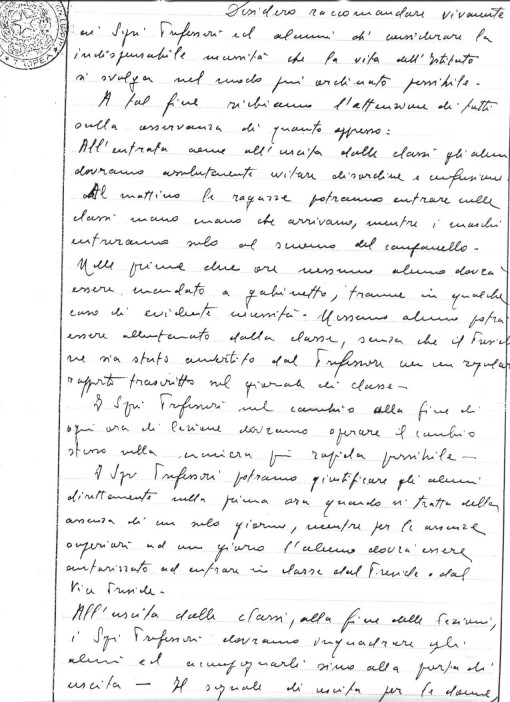 Desidero raccomandare vivamente
ai Sgri Professori ed alunni di considerare la
indispensabile necessità che la vita dell'Istituto
si svolga nel modo più ordinato possibile.
A tal fine richiamo l'attenzione di tutti
sulla osservanza di quanto appresso:
All'entrata come all'uscita dalle classi gli alun
dovranno assolutamente evitare disordine e confusione.
Al mattino le ragazze potranno entrare nelle
classi mano mano che arrivano, mentre i maschi
entreranno solo al suono del campanello.
Nelle prime due ore nessuno alunno dovrà
essere mandato a gabinetto, tranne in qualche
caso di evidente necessità. Nessuno alunno potrà
essere allontanato dalla classe, senza che il Presid
ne sia stato avvertito dal Professore con un regolar
rapporto trascritto sul giornale di classe -
I Sgri Professori nel cambio alla fine di
ogni ora di lezione dovranno operare il cambio
stesso nella maniera più rapida possibile -
I Sgri Professori potranno giustificare gli alunni
direttamente nella prima ora quando si tratta della
assenza di un solo giorno, mentre per le assenze
superiori ad un giorno l'alunno dovrà essere
autorizzato ad entrare in classe dal Preside o dal
Vice Preside.
All'uscita dalle classi, alla fine delle lezioni,
i Sgri Professori dovranno inquadrare gli
alunni ed accompagnarli sino alla porta di
uscita - Il segnale di uscita per le donne,
TROPEA